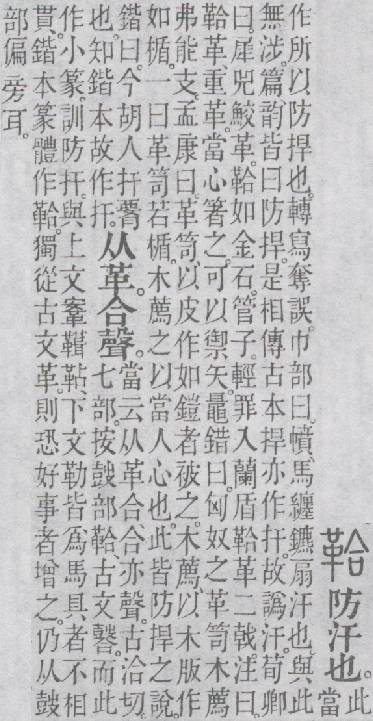 鞈防汗也。此當
作所以防捍也。轉寫奪誤。巾部曰。幩、馬纏鑣扇汗也。與
無涉。篇韵皆曰防捍。是相傳古本捍亦作扞。故譌汗。荀卿
曰。犀兕鮫革。鞈如金石。管子。輕罪入蘭盾鞈革二戟。注曰。
鞈革重革。當心箸之。可以禦矢。鼂錯曰。匈奴之革笥木薦
弗能支。孟康曰。革笥、以皮作如鎧者被之。木薦、以木版作
如楯。一曰革笥若楯。木薦之以當人心也。此皆防捍之說。
鍇曰。今胡人扞𦝫
也。知鍇本故作扞。
从革。合聲。
當云从革合、合亦聲。古洽切。
七部。按鼓部鞈、古文。而此
作小篆。訓防扞。與上文鞌䩸鞊、下文勒皆爲馬具者不相
貫。鍇本篆體作鞈。獨從古文革。則恐好事者增之。仍从鼓
部偏旁耳。